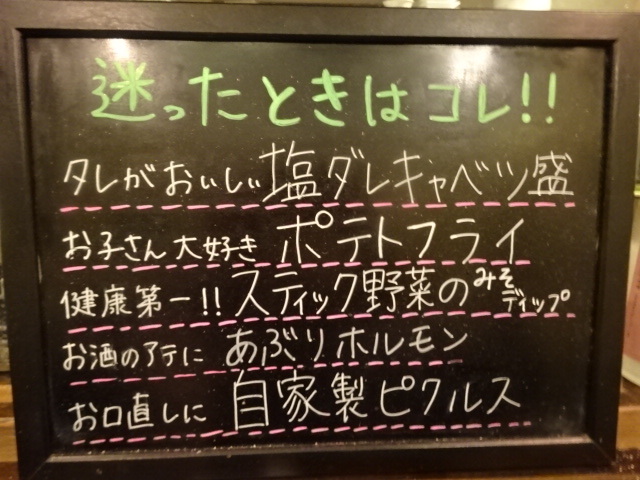 迷ったときはコレ!!
タレがおいしい塩ダレキャベツ盛
お子さん大好き ポテトフライ
健康第一!! スティック野菜のみそディップ
お酒のアテに あぶりホルモン
お口直しに 自家製ピクルス